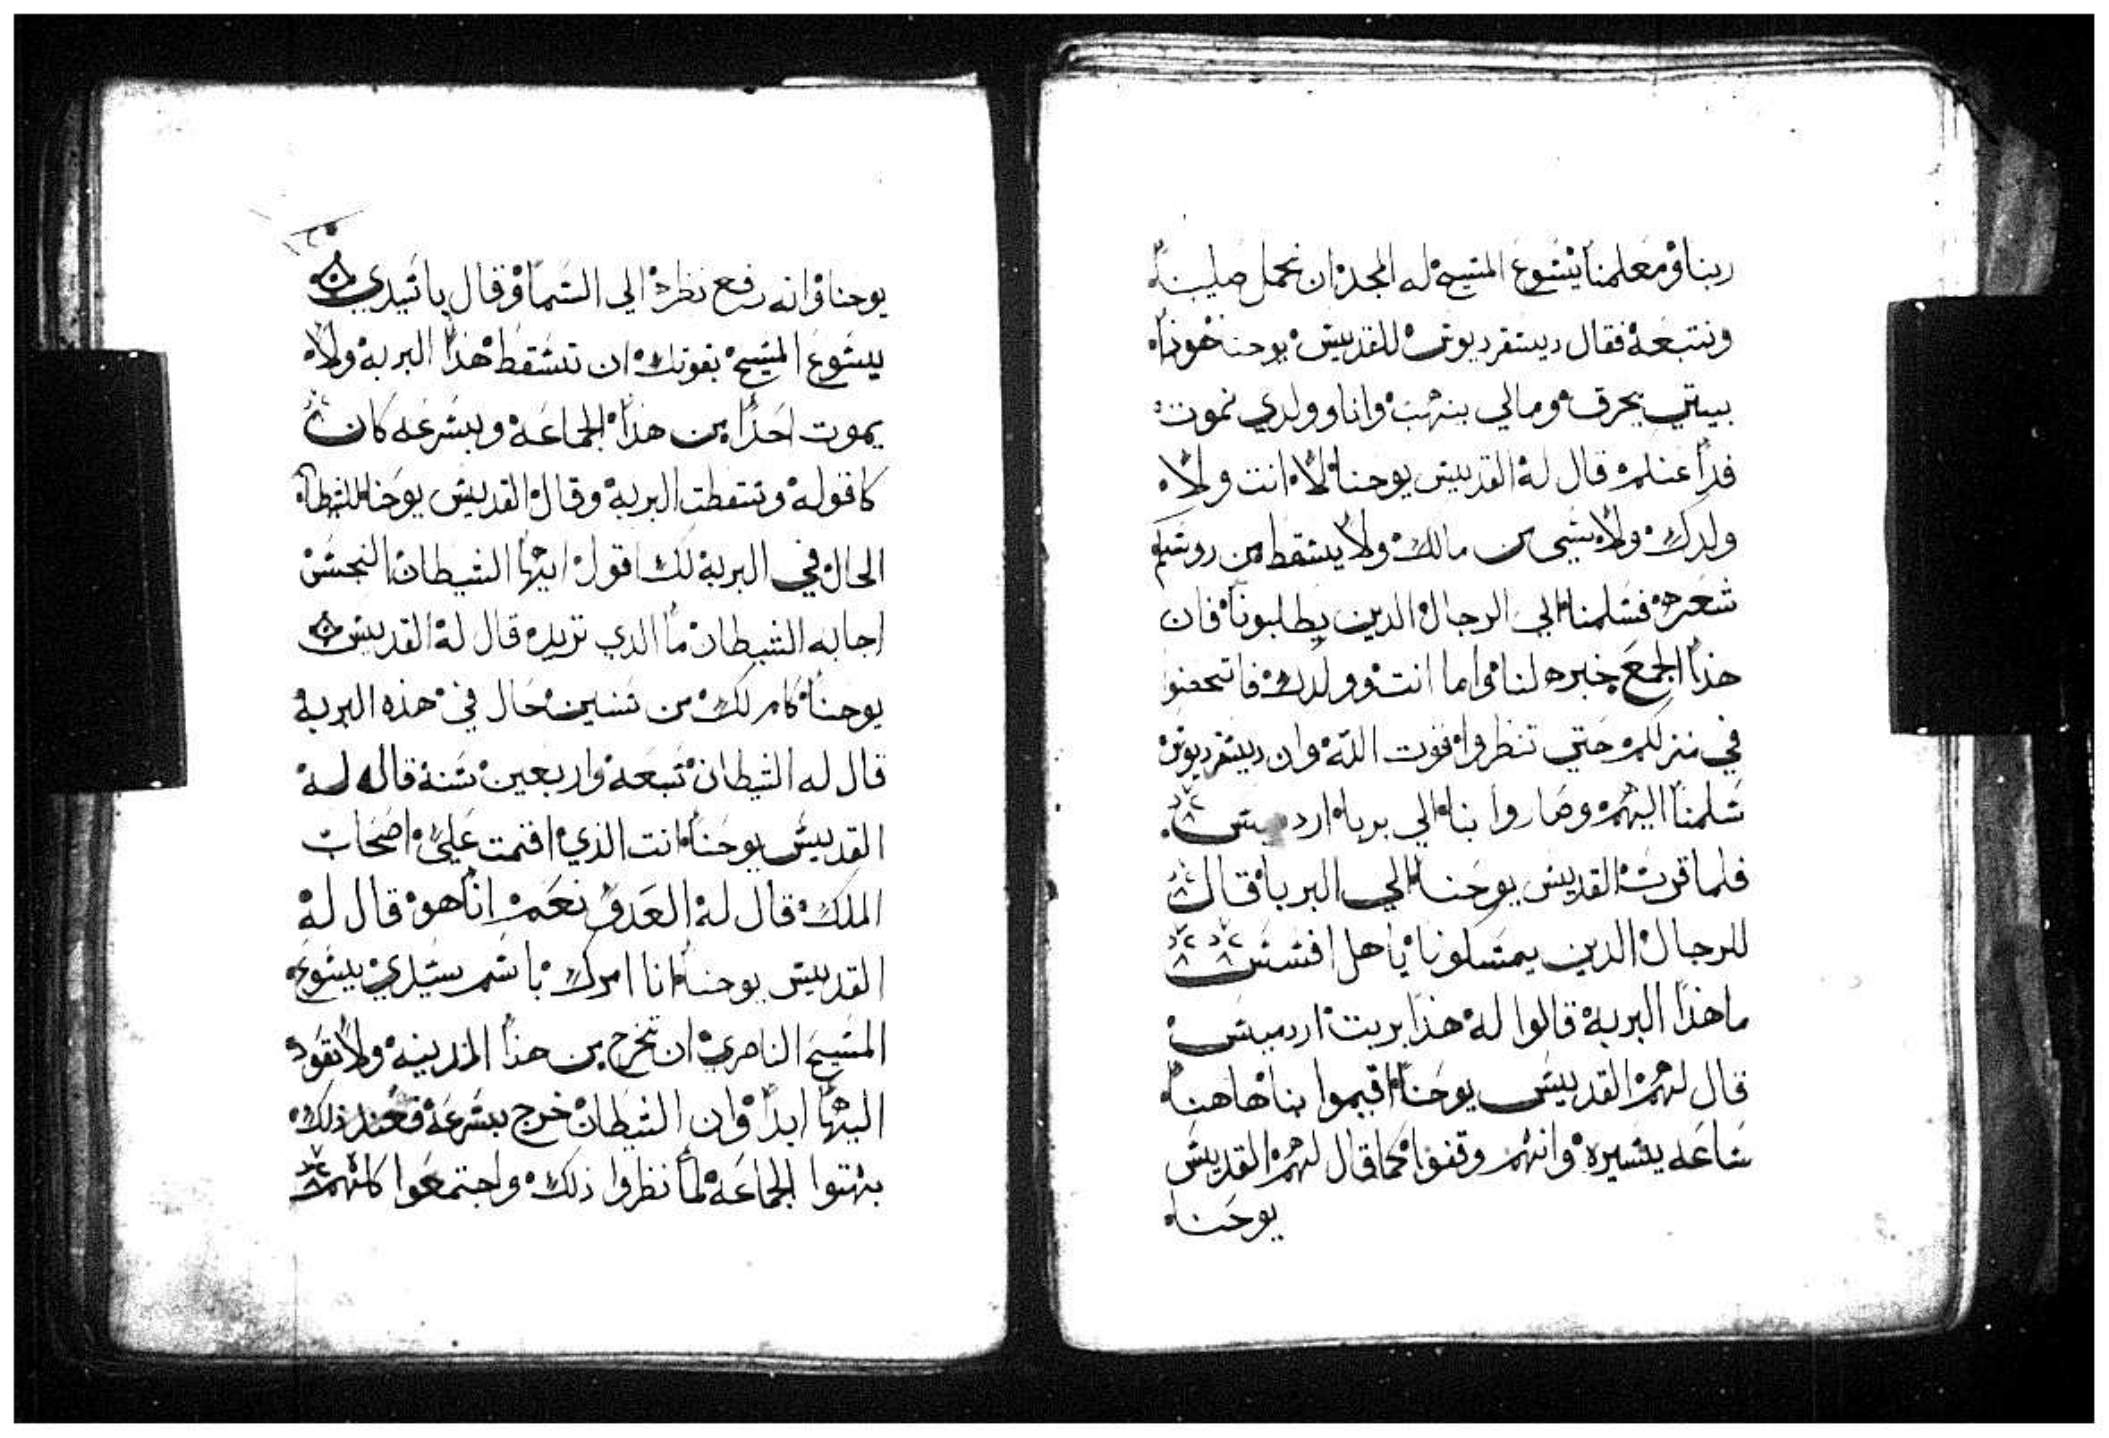 ربنا ومعلمنا يسوع المسيح له المجد ان نحمل صليبنا
ونتبعه فقال ديسقرديوس للقديس يوحنا هوذا
بيتي يحرق ومالي ينهب وانا وولدي نموت
قال له القديس يوحنا لا انت ولا
ولدك ولا شي من مالك ولا يسقط من روسكم
شعره فسلمنا الي الرجال الدين يطلبونا فان
هذا الجمع خبره لنا واما انت وولدك
في منزلكم حتي تنظروا قوت الله وان ديسقرديوس
سلمنا اليهم وصاروا بنا الي بربا
فلما قرب القديس يوحنا الي البربا قال
للرجال الدين يمسكونا يا هل افسس
ما هذا البربه قالوا له هذا بربت اردميس
قال لهم القديس يوحنا اقيموا بنا هاهنا
ساعه يسيره وانهم وقفوا كما قال لهم القديس
يوحنا
يوحنا وانه رفع نظره الي السما وقال يا سيدي
يسوع المسيح بقوتك ان تسقط هذا البربه ولا
يموت احدا من هذا الجماعه وبسرعه كان
كا قوله وسقطت البربه وقال القديس يوحنا للشيطان
الحال في البربه لك اقول ايها الشيطان النجس
اجابه الشيطان ما الدي تريده قال له القديس
يوحنا كام لك من سنين حال في هذه البربه
قال له الشيطان تسعه واربعين سنة قال له
القديس يوحنا انت الذي اقمت علي اصحاب
الملك قال له العدو نعم انا هو قال له
القديس يوحنا انا امرك باسم سيدي يسوع
المسيح الناصري ان تخرج من هذا المدينه ولا تعود
اليها ابدا وان الشيطان خرج بسرعه فعند ذلك
بهتوا الجماعه لما نظروا ذلك واجتمعوا كلهم